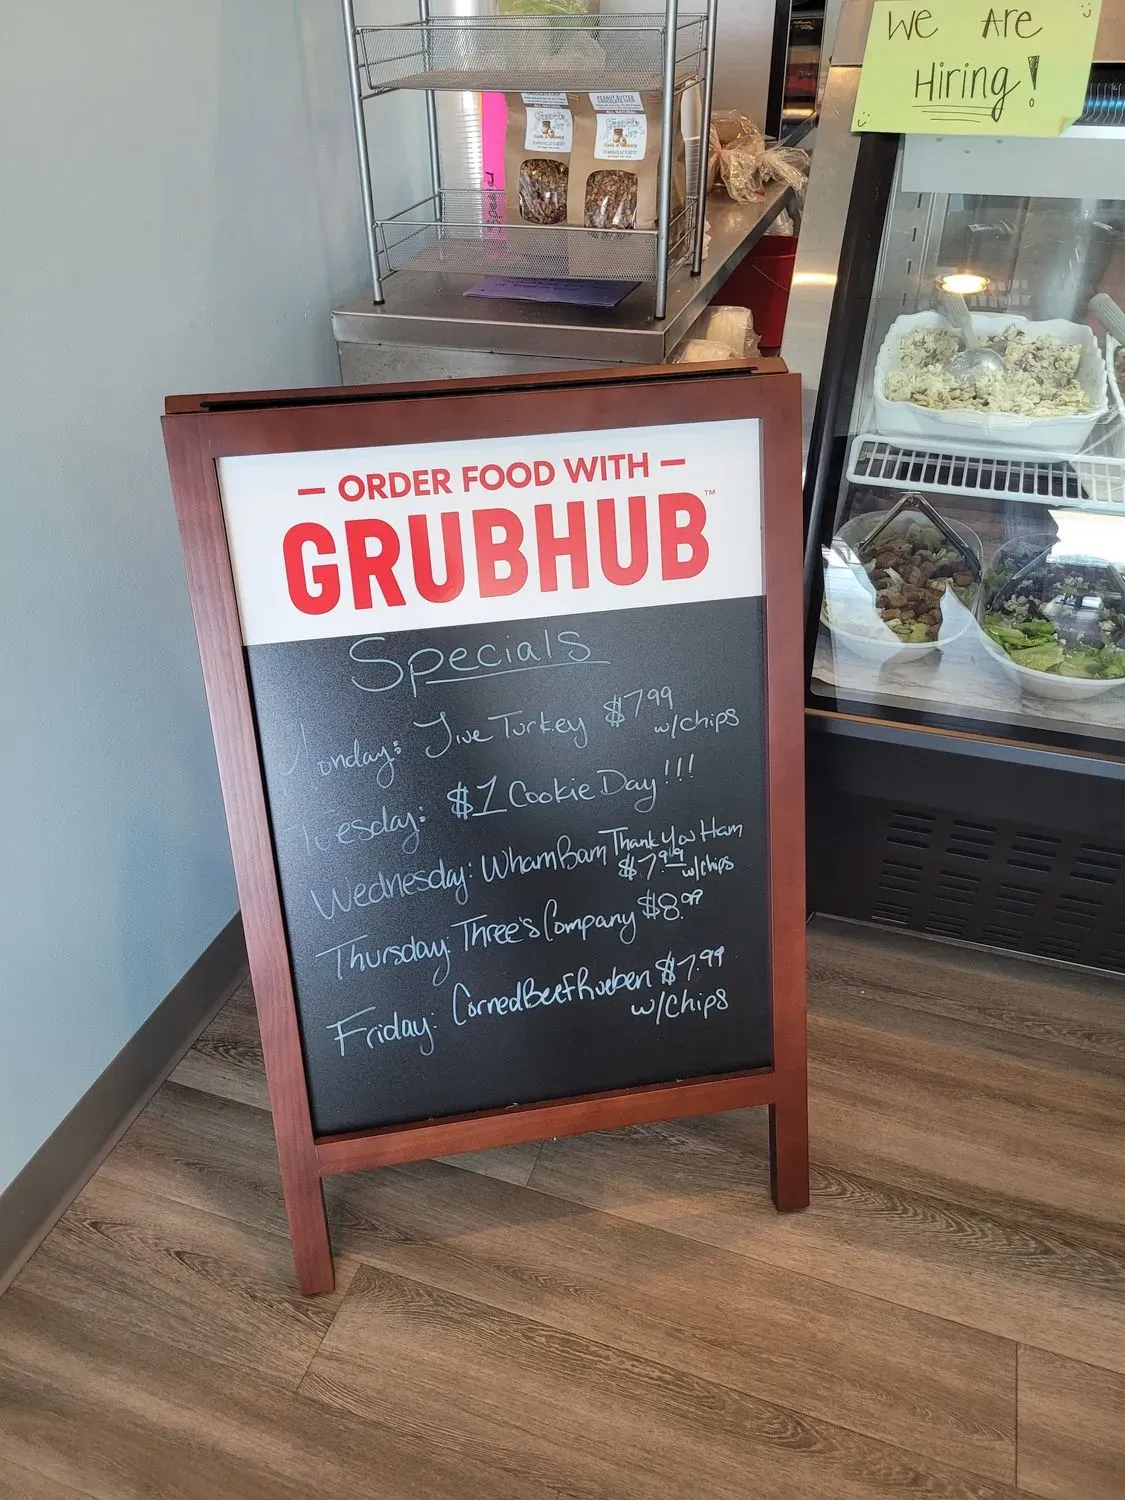 We Are
Hiring!
PEANUT BUTTER
CHOCOLATE CHIP
— ORDER FOOD WITH —
GRUBHUB™
Specials
Monday: Jive Turkey $7.99
w/chips
Tuesday: $1 Cookie Day!!!
Wednesday: Wham Bam Thank You Ham
$7.99 w/chips
Thursday: Three's Company $8.99
Friday: Corned Beef Rueben $7.99
w/Chips